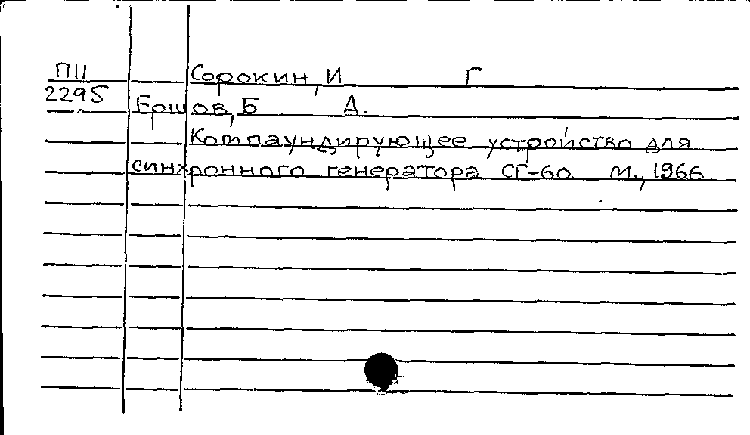 ПII Сорокин, И Г
2295 Ершов, Б А.
Компаундирующее устройство для
синхронного генератора СГ-60 М., 1966